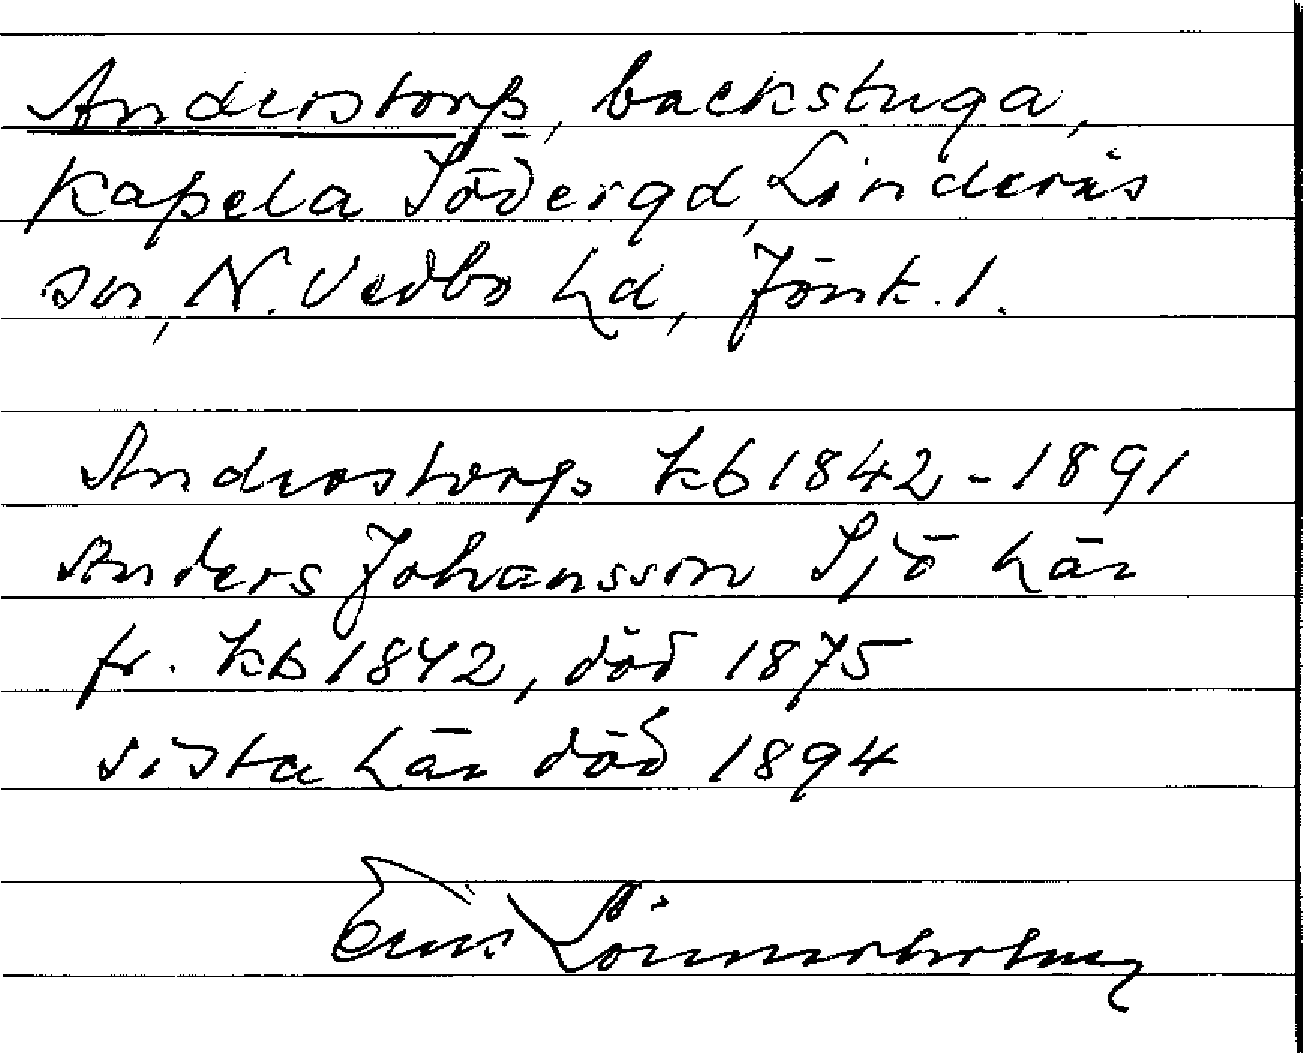 Anderstorp, backstuga,
Kapela Södergd, Linderås
sn, N. Vedbo hd, Jönk. l.
Anderstorp kb 1842-1891
Anders Johansson Sjö här
fr. kb 1842, död 1875
sista här död 1894
Erik Lönnerholm